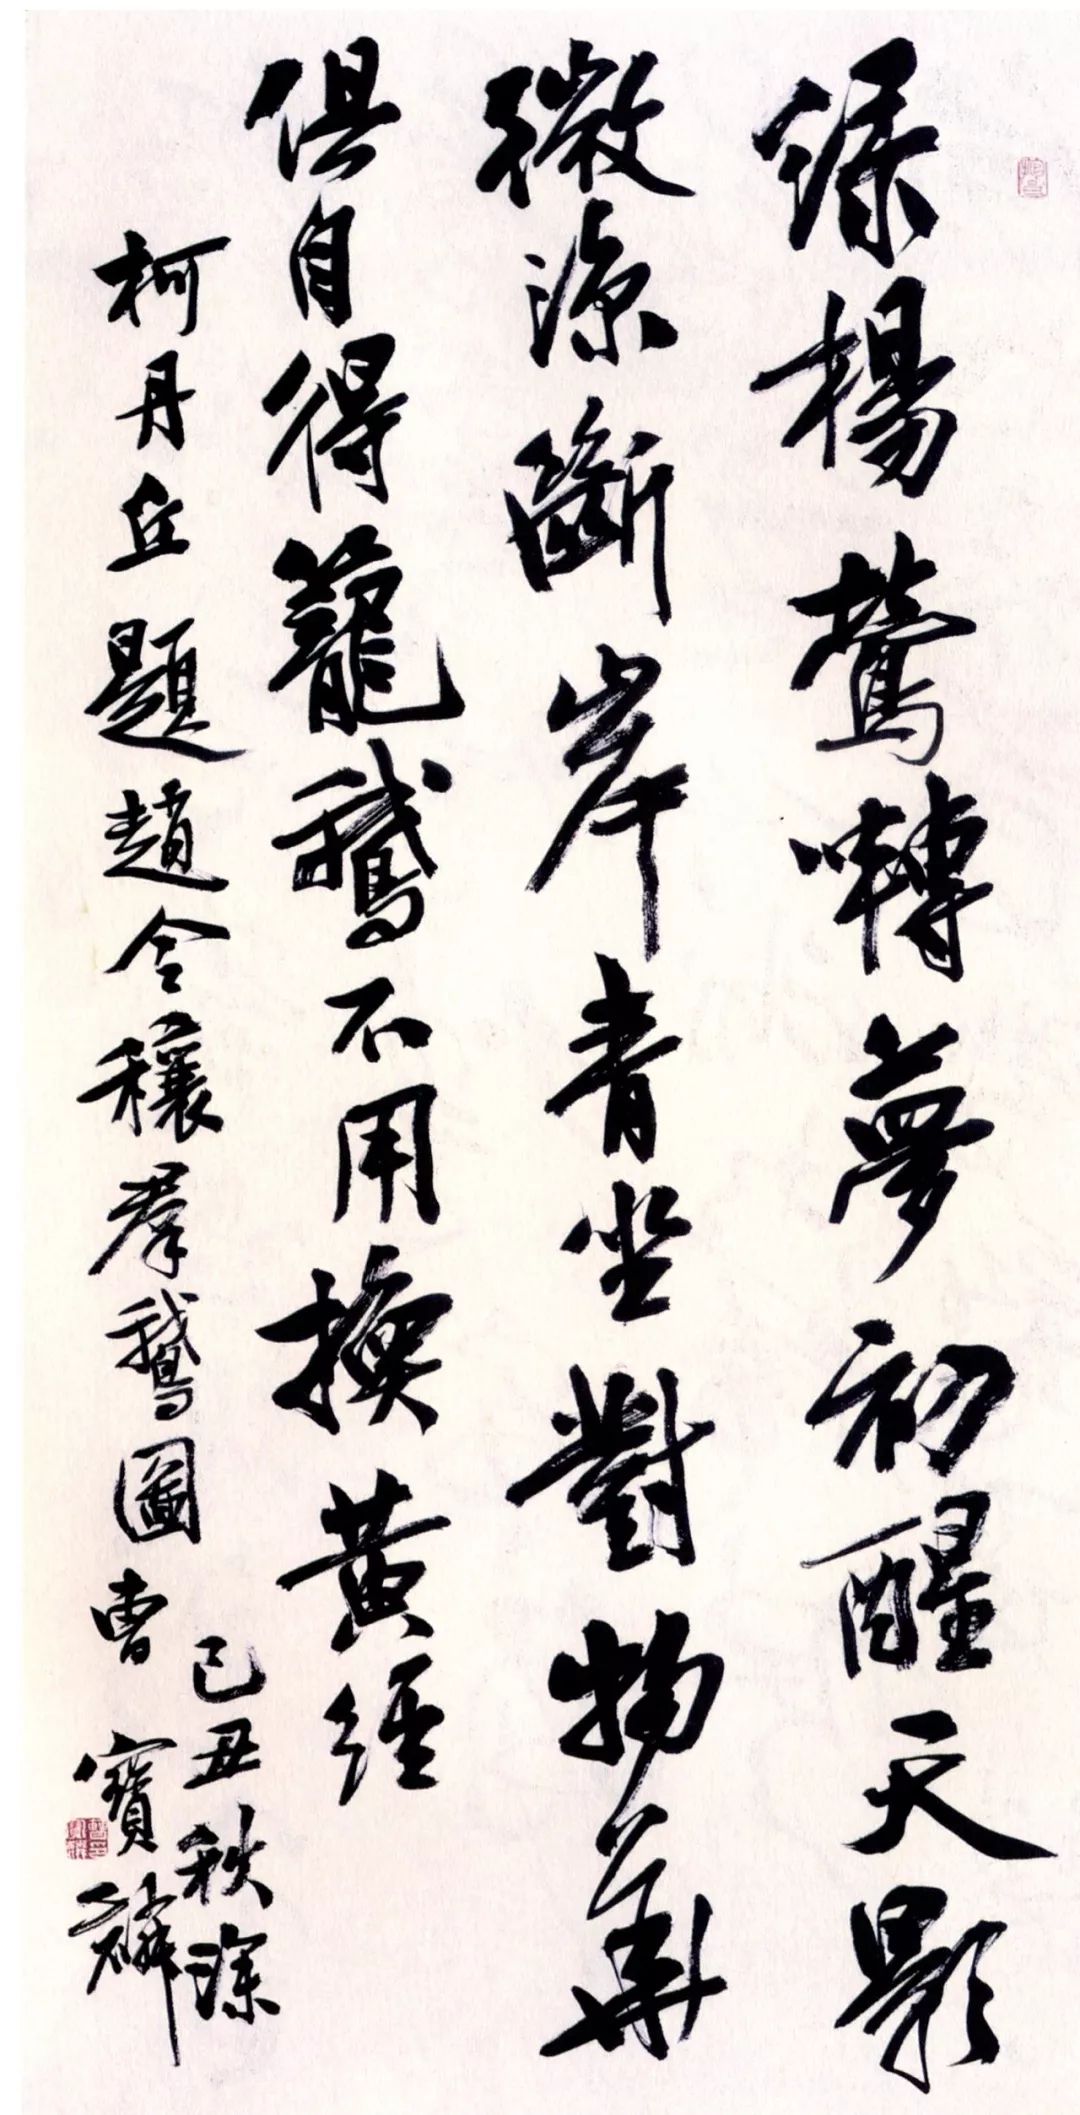 綠楊鶯囀夢初醒天影
微涼斷岸青坐對物華
俱自得籠鵝不用換黃經
柯丹丘題趙令穰羣鵝圖曹寶麟
己丑秋深